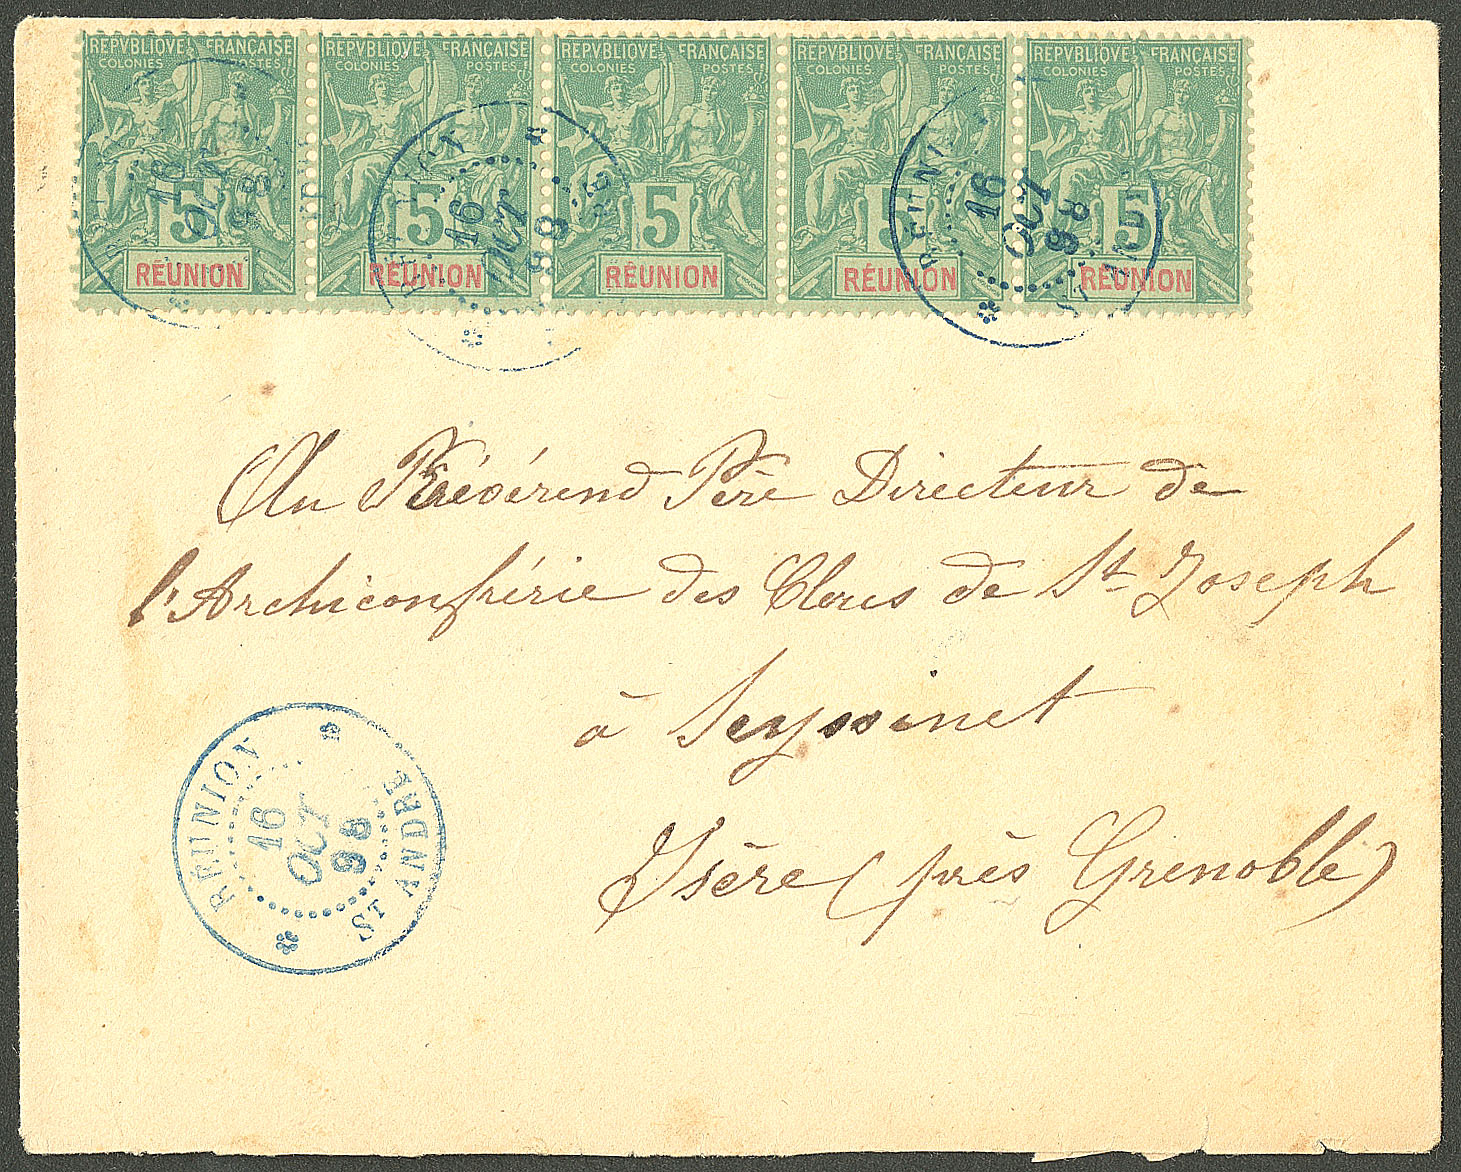 REPVBLIQVE FRANÇAISE REPVBLIQVE FRANÇAISE REPVBLIQVE FRANÇAISE REPVBLIQVE FRANÇAISE REPVBLIQVE FRANÇAISE
COLONIES POSTES COLONIES POSTES COLONIES POSTES COLONIES POSTES COLONIES POSTES
5 5 5 5 5
RÉUNION RÉUNION RÉUNION RÉUNION RÉUNION
16 OCT 98
16 OCT 98
RÉUNI 16 OCT 98
Au Révérend Père Directeur de
l'Archiconfrérie des Clercs de St Joseph
à Seyssinet
Isère (près Grenoble)
RÉUNION
16
OCT
98
ST ANDRE